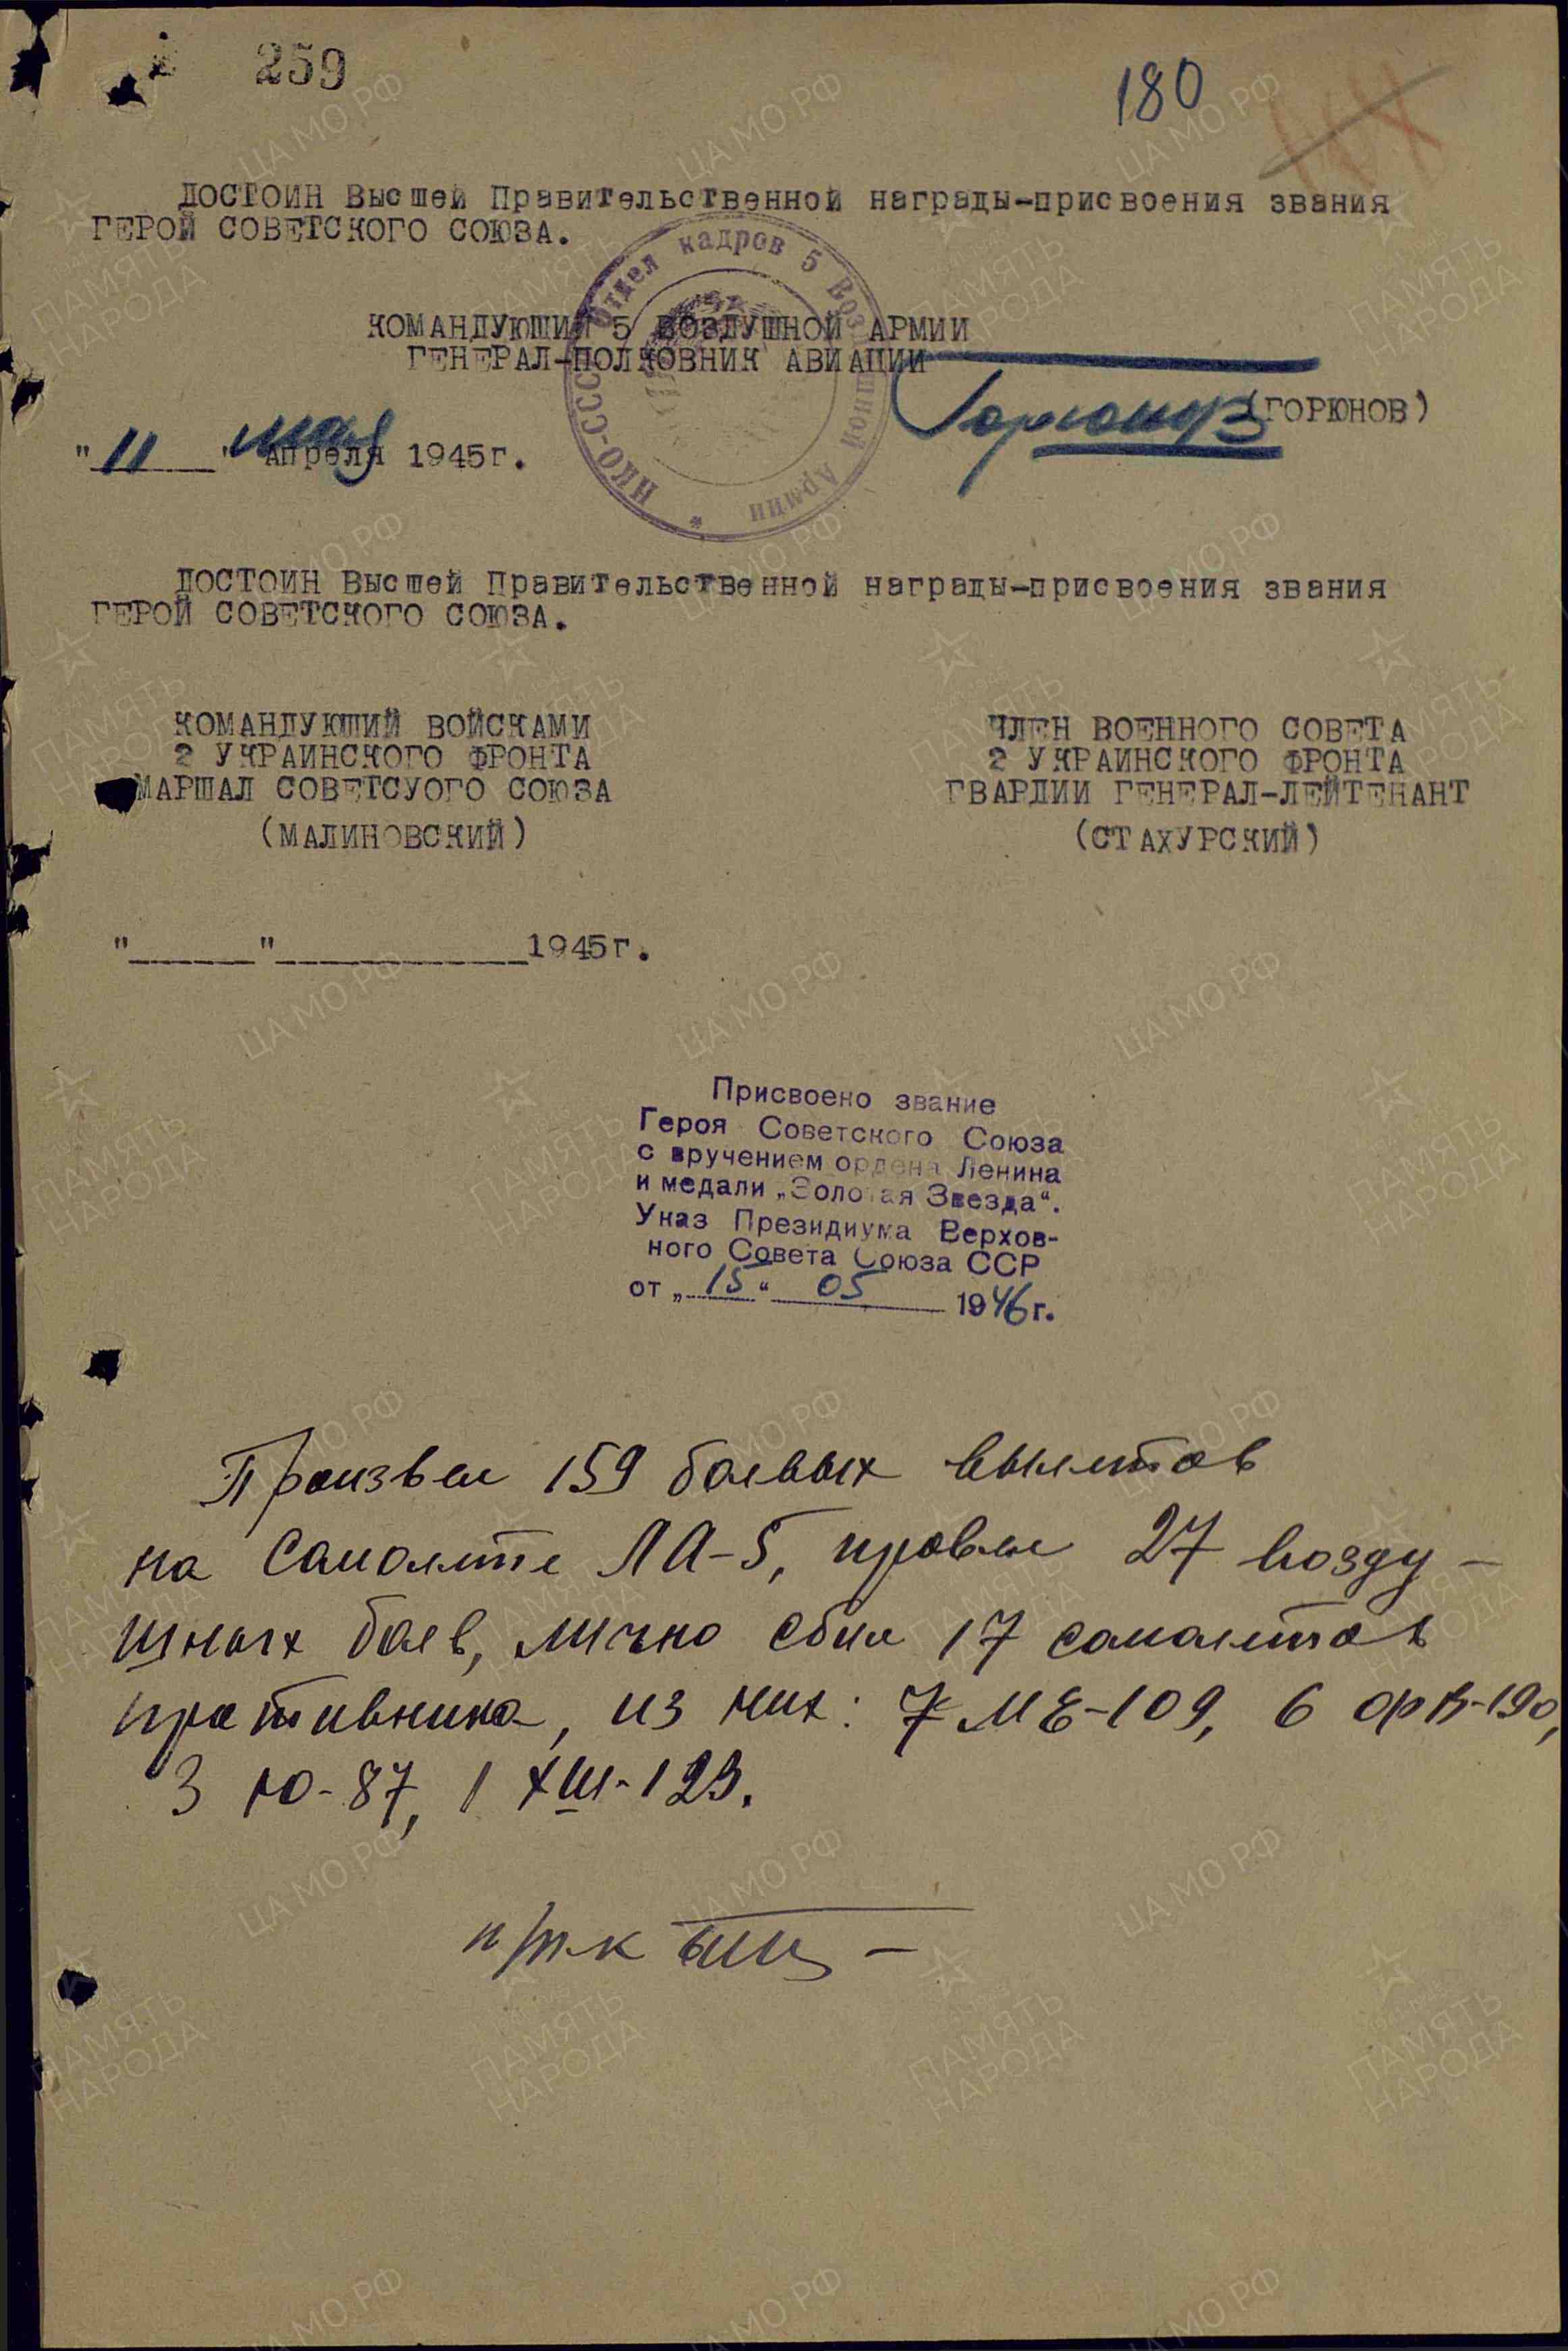 259
180
ДОСТОИН Высшей Правительственной награды-присвоения звания
ГЕРОЙ СОВЕТСКОГО СОЮЗА.
НКО-СССР Отдел кадров 5 Воздушной Армии *
КОМАНДУЮЩИЙ 5 ВОЗДУШНОЙ АРМИИ
ГЕНЕРАЛ-ПОЛКОВНИК АВИАЦИИ
Горюнов (ГОРЮНОВ)
"11" мая апреля 1945г.
ДОСТОИН Высшей Правительственной награды-присвоения звания
ГЕРОЙ СОВЕТСКОГО СОЮЗА.
КОМАНДУЮЩИЙ ВОЙСКАМИ
2 УКРАИНСКОГО ФРОНТА
МАРШАЛ СОВЕТСУОГО СОЮЗА
(МАЛИНОВСКИЙ)
ЧЛЕН ВОЕННОГО СОВЕТА
2 УКРАИНСКОГО ФРОНТА
ГВАРДИИ ГЕНЕРАЛ-ЛЕЙТЕНАНТ
(СТАХУРСКИЙ)
"______"____________1945г.
Присвоено звание
Героя Советского Союза
с вручением ордена Ленина
и медали „Золотая Звезда“.
Указ Президиума Верхов-
ного Совета Союза ССР
от „15“ 05 1946г.
Произвел 159 боевых вылетов
на самолете ЛА-5, провел 27 возду-
шных боев, лично сбил 17 самолетов
противника, из них: 7 МЕ-109, 6 ФВ-190,
3 Ю-87, 1 ХШ-129.
п/п-к
ЦА МО РФ
ПАМЯТЬ НАРОДА